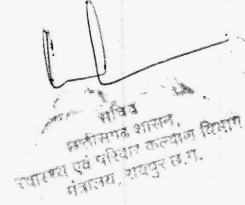 सचिव
छत्तीसगढ़ शासन,
स्वास्थ्य एवं परिवार कल्याण विभाग
मंत्रालय, रायपुर छ.ग.